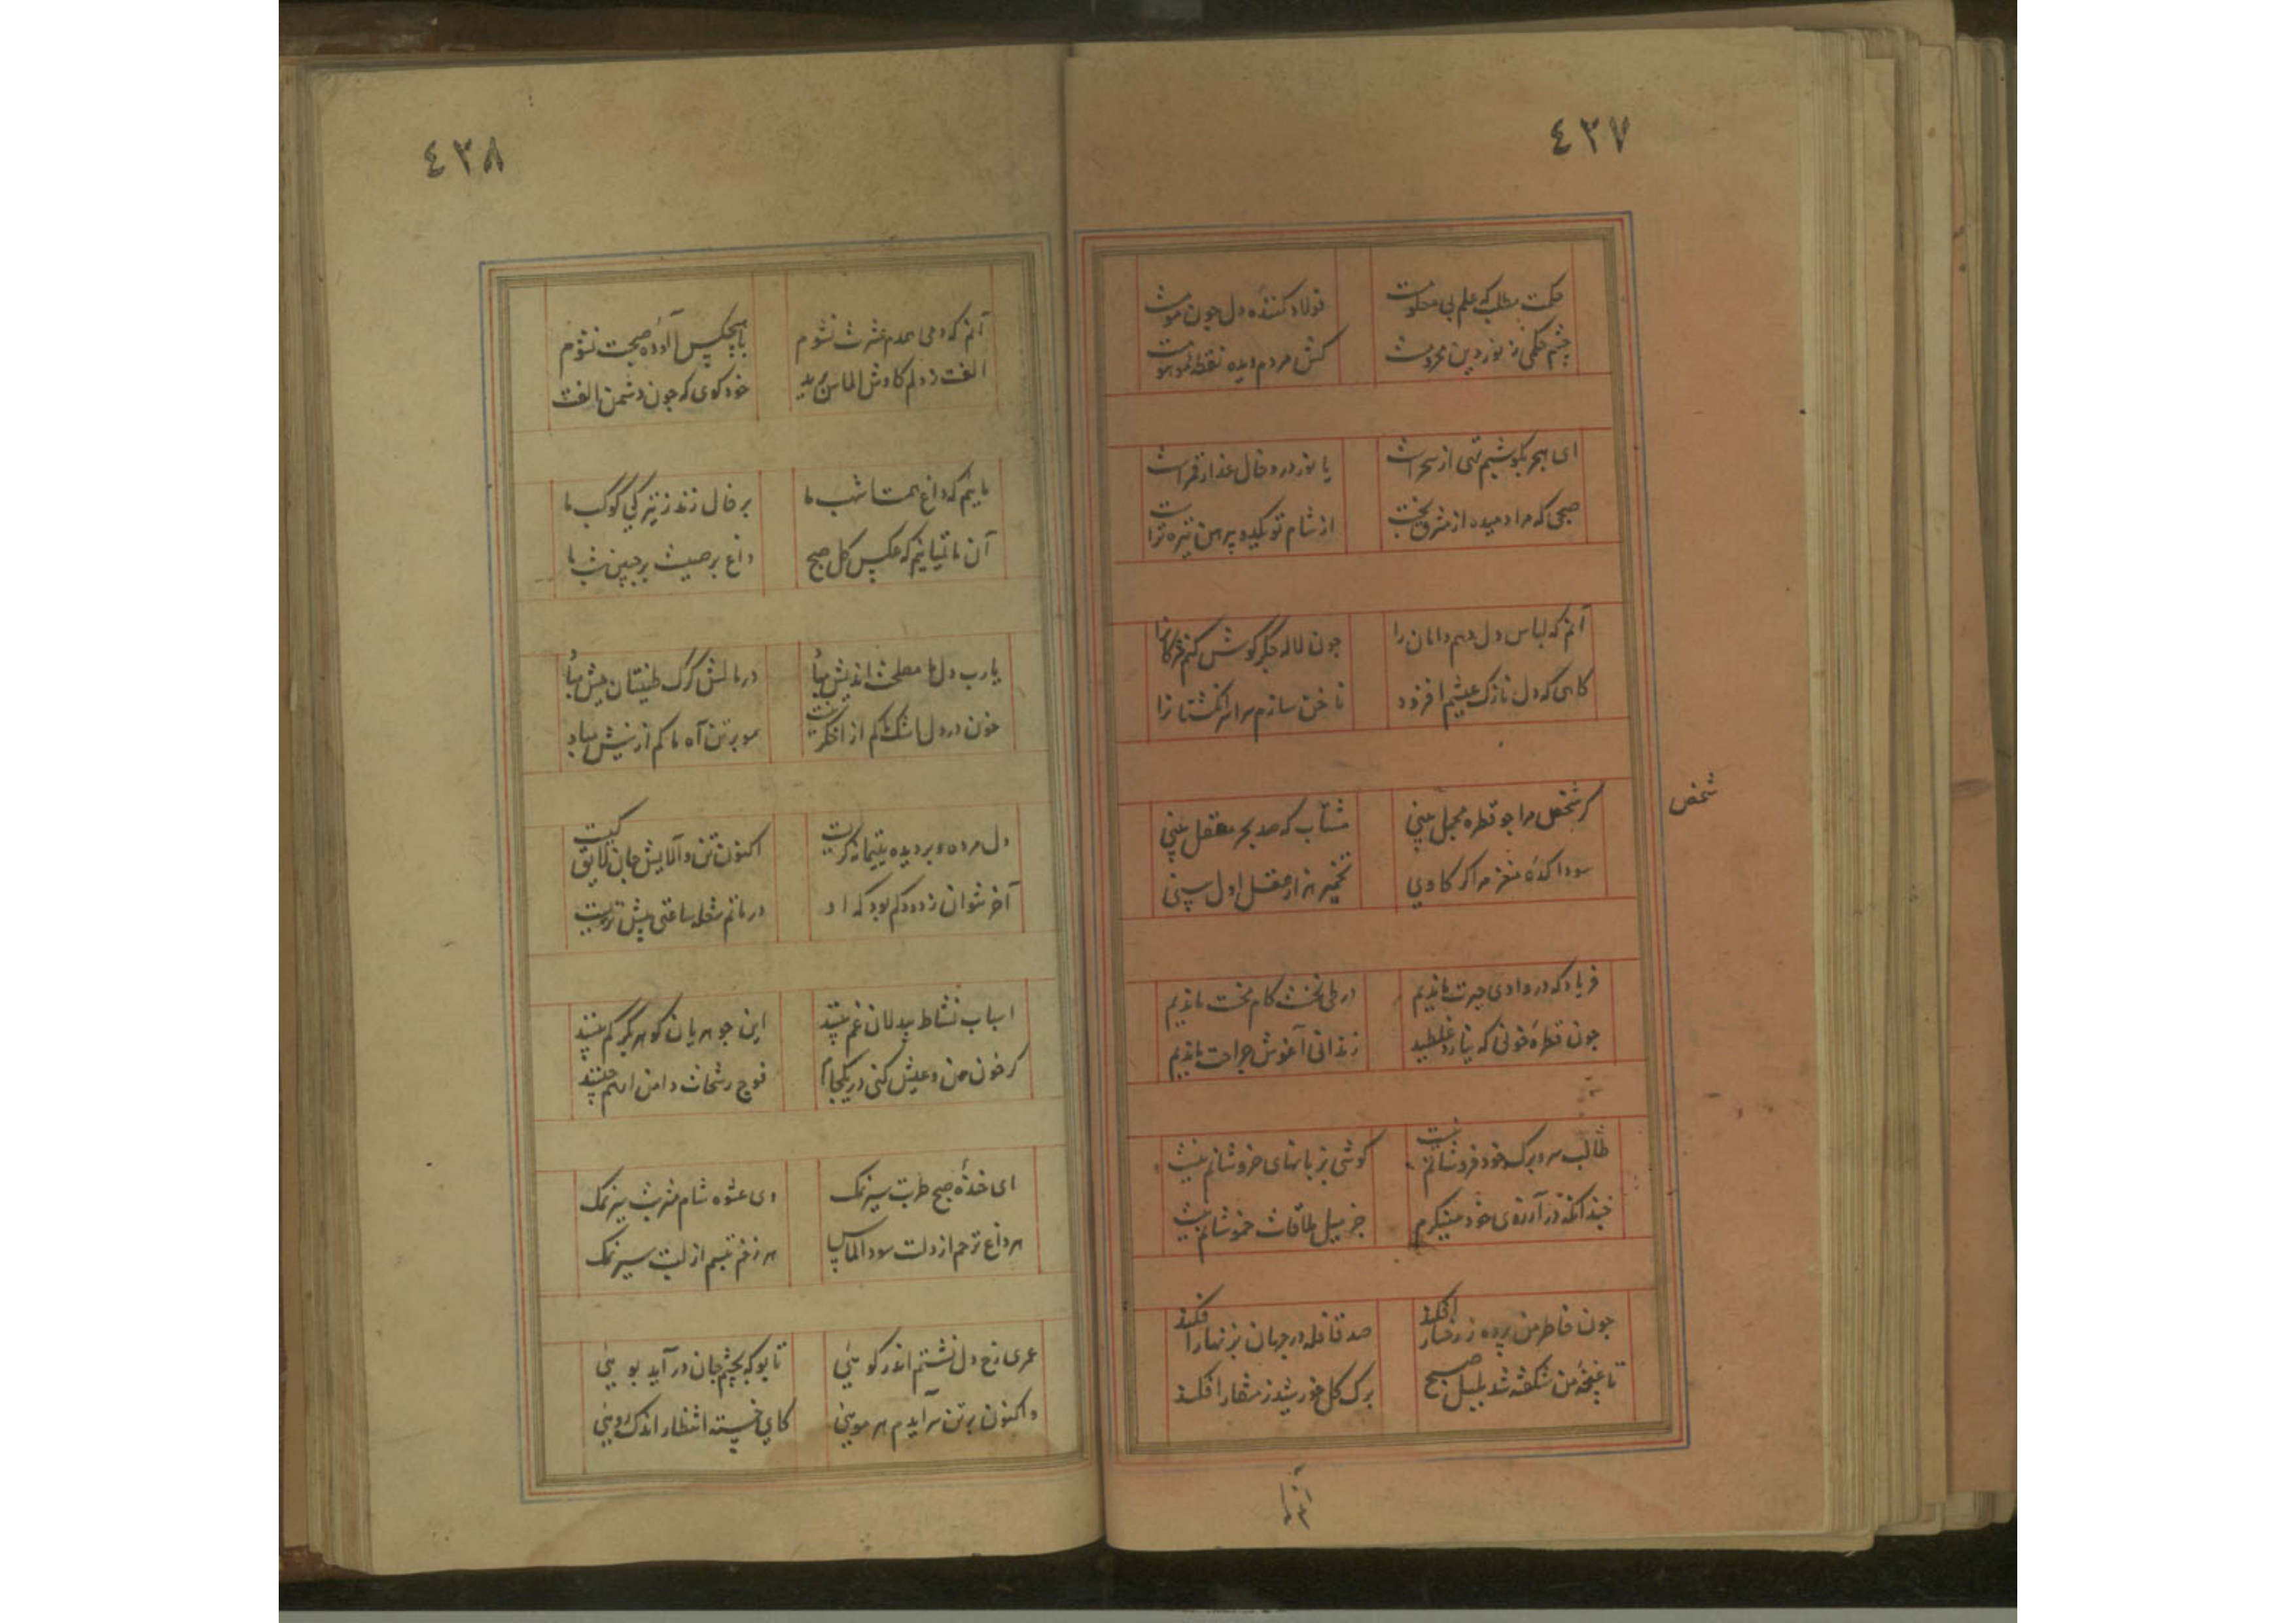 ٤٣٧
حکمت مطلب که علم بی معلومست
فولاد کننده دل چون مومست
چشم حکمی ز نور دین محرومست
کش مردم دیده نقطه موهومست
ای هجر بگو شبم تهی از سحر است
یا نوز درو خال عذار قمر است
صبحی که مرا دمیده از مشرق بخت
از شام تو یکدو پیرهن تیره تر است
آنم که لباس دل دهم دامان را
چون لاله جگرگوش کنم مژکانرا
کاهی که دل نازک عیشم افزود
ناخن سازم سراسر انکشتانرا
کر شخص مرا چو قطره مجمل بینی
مشتاب که صد بحر مفصل بینی
سودا کده مغز مرا کر کاوی
تخمیر هزار عقل اول بینی
شخص
فریاد که در وادی حیرت ماندیم
در طی نخست کام سخت ماندیم
چون قطره خونی که نیارد غلطید
زندانی آغوش جراحت ماندیم
طالب سر و برک خود فروشانم نیست
کوشی بزبانهای خروشانم نیست
چندانکه در آرزوی خود مینکرم
جز میل ملاقات خموشانم نیست
چون خاطر من پرده ز رخسار افکند
صد قافله در جهان بزنهار افکند
تا غنچه من شکفته شد بلبل صبح
برک کل خورشید ز منقار افکند
آنم
٤٣٨
آنم که دمی همدم عشرت نشوم
با هیچکس آلوده صحبت نشوم
الفت ز دلم کاوش الماس برید
خود کوی که چون دشمن الفت
ماییم که داغ همت شب ما
بر خال زند ز تیرکی کوکب ما
آن ماتمیانیم که عکس کل صبح
داغ برصیست بر جبین شب ما
یارب دل ما مصلحت اندیش مباد
در مالش کرک طینتان میش مباد
خون در دل ما اشک ما کم از اخکر نیست
مو بر تن آه ما کم از نیش مباد
دل مرده و بر دیده یتیمانه کریست
اکنون تن و آلایش جان لایق کیست
آخر نتوان ز دود کم بود که او
در ماتم شعله ساعتی بیش نزیست
اسباب نشاط بیدلان غم بینند
این جوهریان کوهر کم بینند
کر خون من و عیش کنی در یکجام
فوج رشحات دامن از هم چینند
ای خنده صبح طربت سیر نمک
وی عشوه شام عشرتت سیر نمک
هر داغ ترحم از دلت سود الماس
هر زخم تبسم از لبت سیر نمک
عمری رخ دل نشستم اندر کویی
تا بو که بچشم جان در آید بویی
و اکنون بر تن سرآیدم هر مویی
کای خسته انتظار اندک رویی